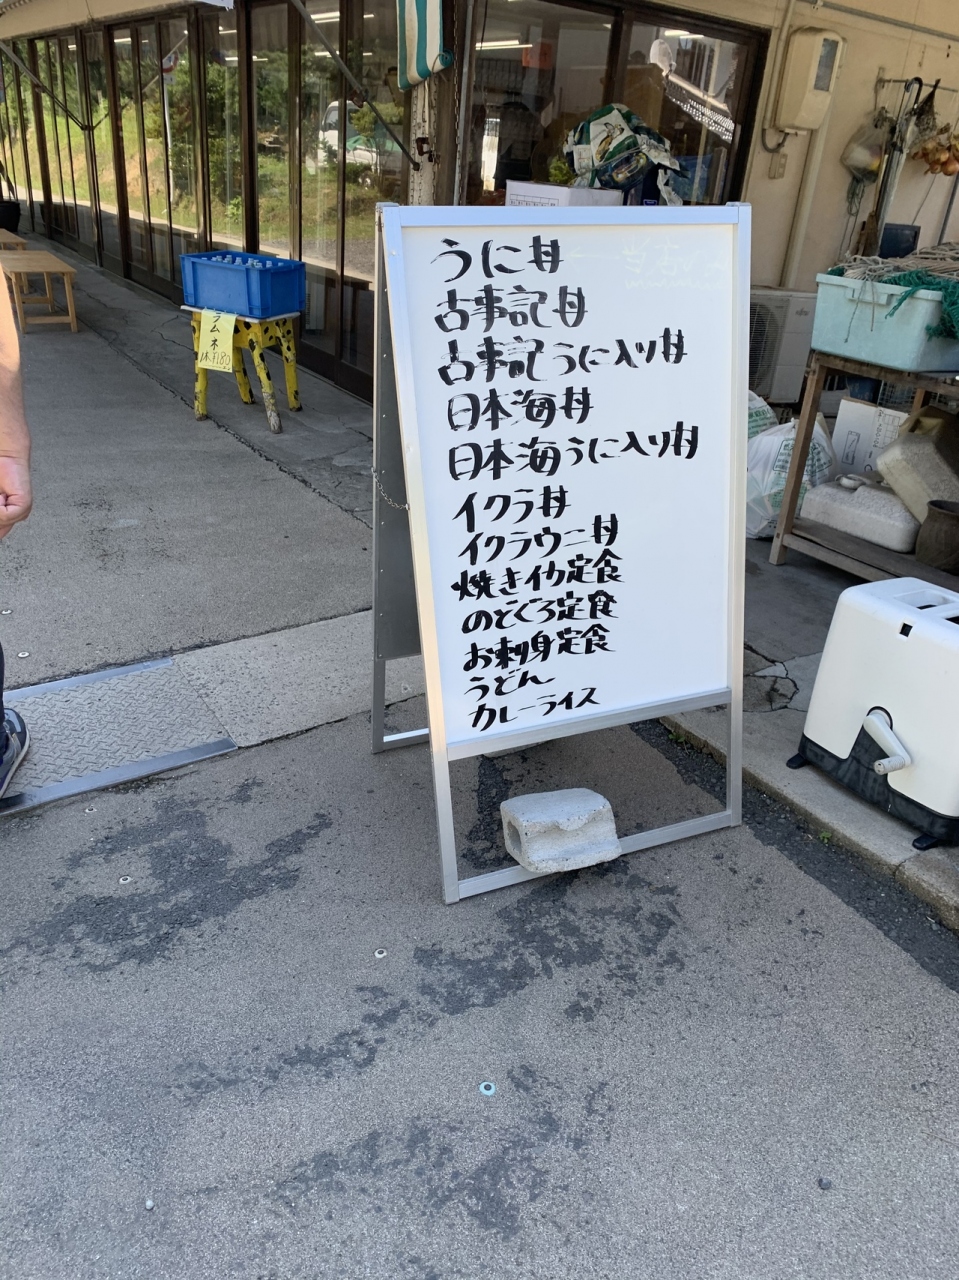 うに丼
古事記丼
古事記うに入り丼
日本海丼
日本海うに入り丼
イクラ丼
イクラウニ丼
焼きイカ定食
のどぐろ定食
お刺身定食
うどん
カレーライス
ラムネ
1本¥180